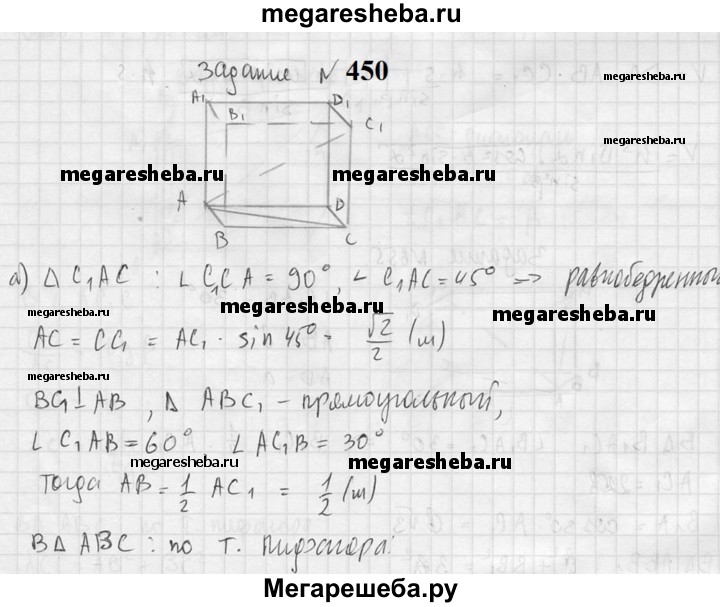 megaresheba.ru
Задание № 450
megaresheba.ru
A₁ D₁
B₁ C₁
megaresheba.ru
megaresheba.ru megaresheba.ru
A D
B C
а) Δ C₁AC : ∟ C₁CA = 90°, ∟ C₁AC = 45° => равнобедренный
megaresheba.ru megaresheba.ru
AC = CC₁ = AC₁ · sin 45° = √2/2 (м)
megaresheba.ru
megaresheba.ru
BC₁ ⊥ AB, Δ ABC₁ – прямоугольный,
∟ C₁AB = 60° ∟ AC₁B = 30°
megaresheba.ru megaresheba.ru
Тогда AB = 1/2 AC₁ = 1/2 (м)
megaresheba.ru
В Δ ABC : по т. Пифагора:
Мегарешеба.ру